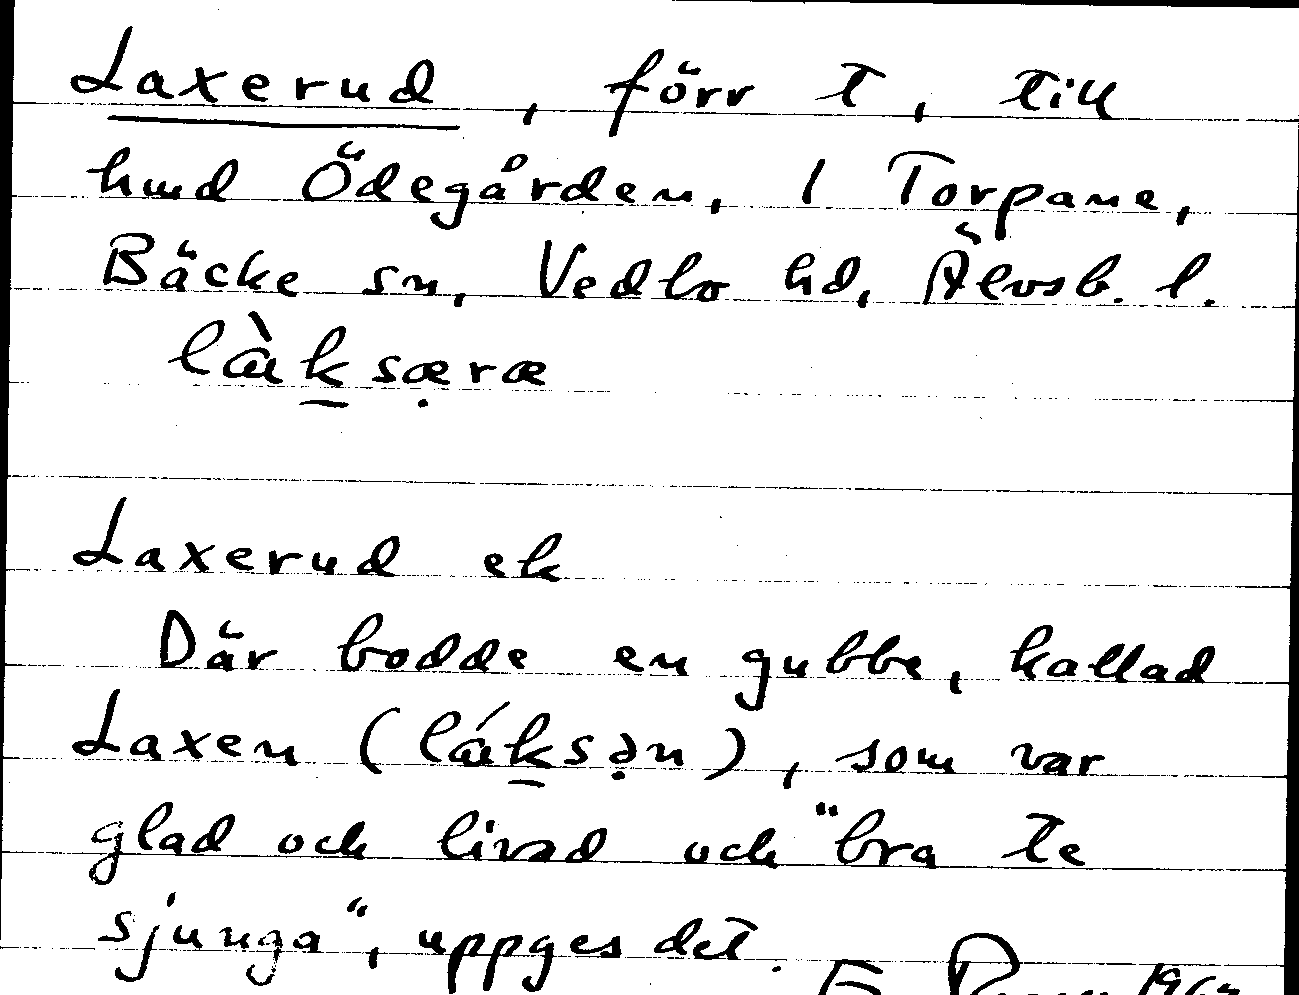 Laxerud, förr t, till
hmd Ödegården, 1 Torpane,
Bäcke sn, Vedbo hd, Älvsb. l.
làksæ̣ræ
Laxerud ek
Där bodde en gubbe, kallad
Laxen (láksə̣n), som var
glad och livad och "bra te
sjunga", uppges det.